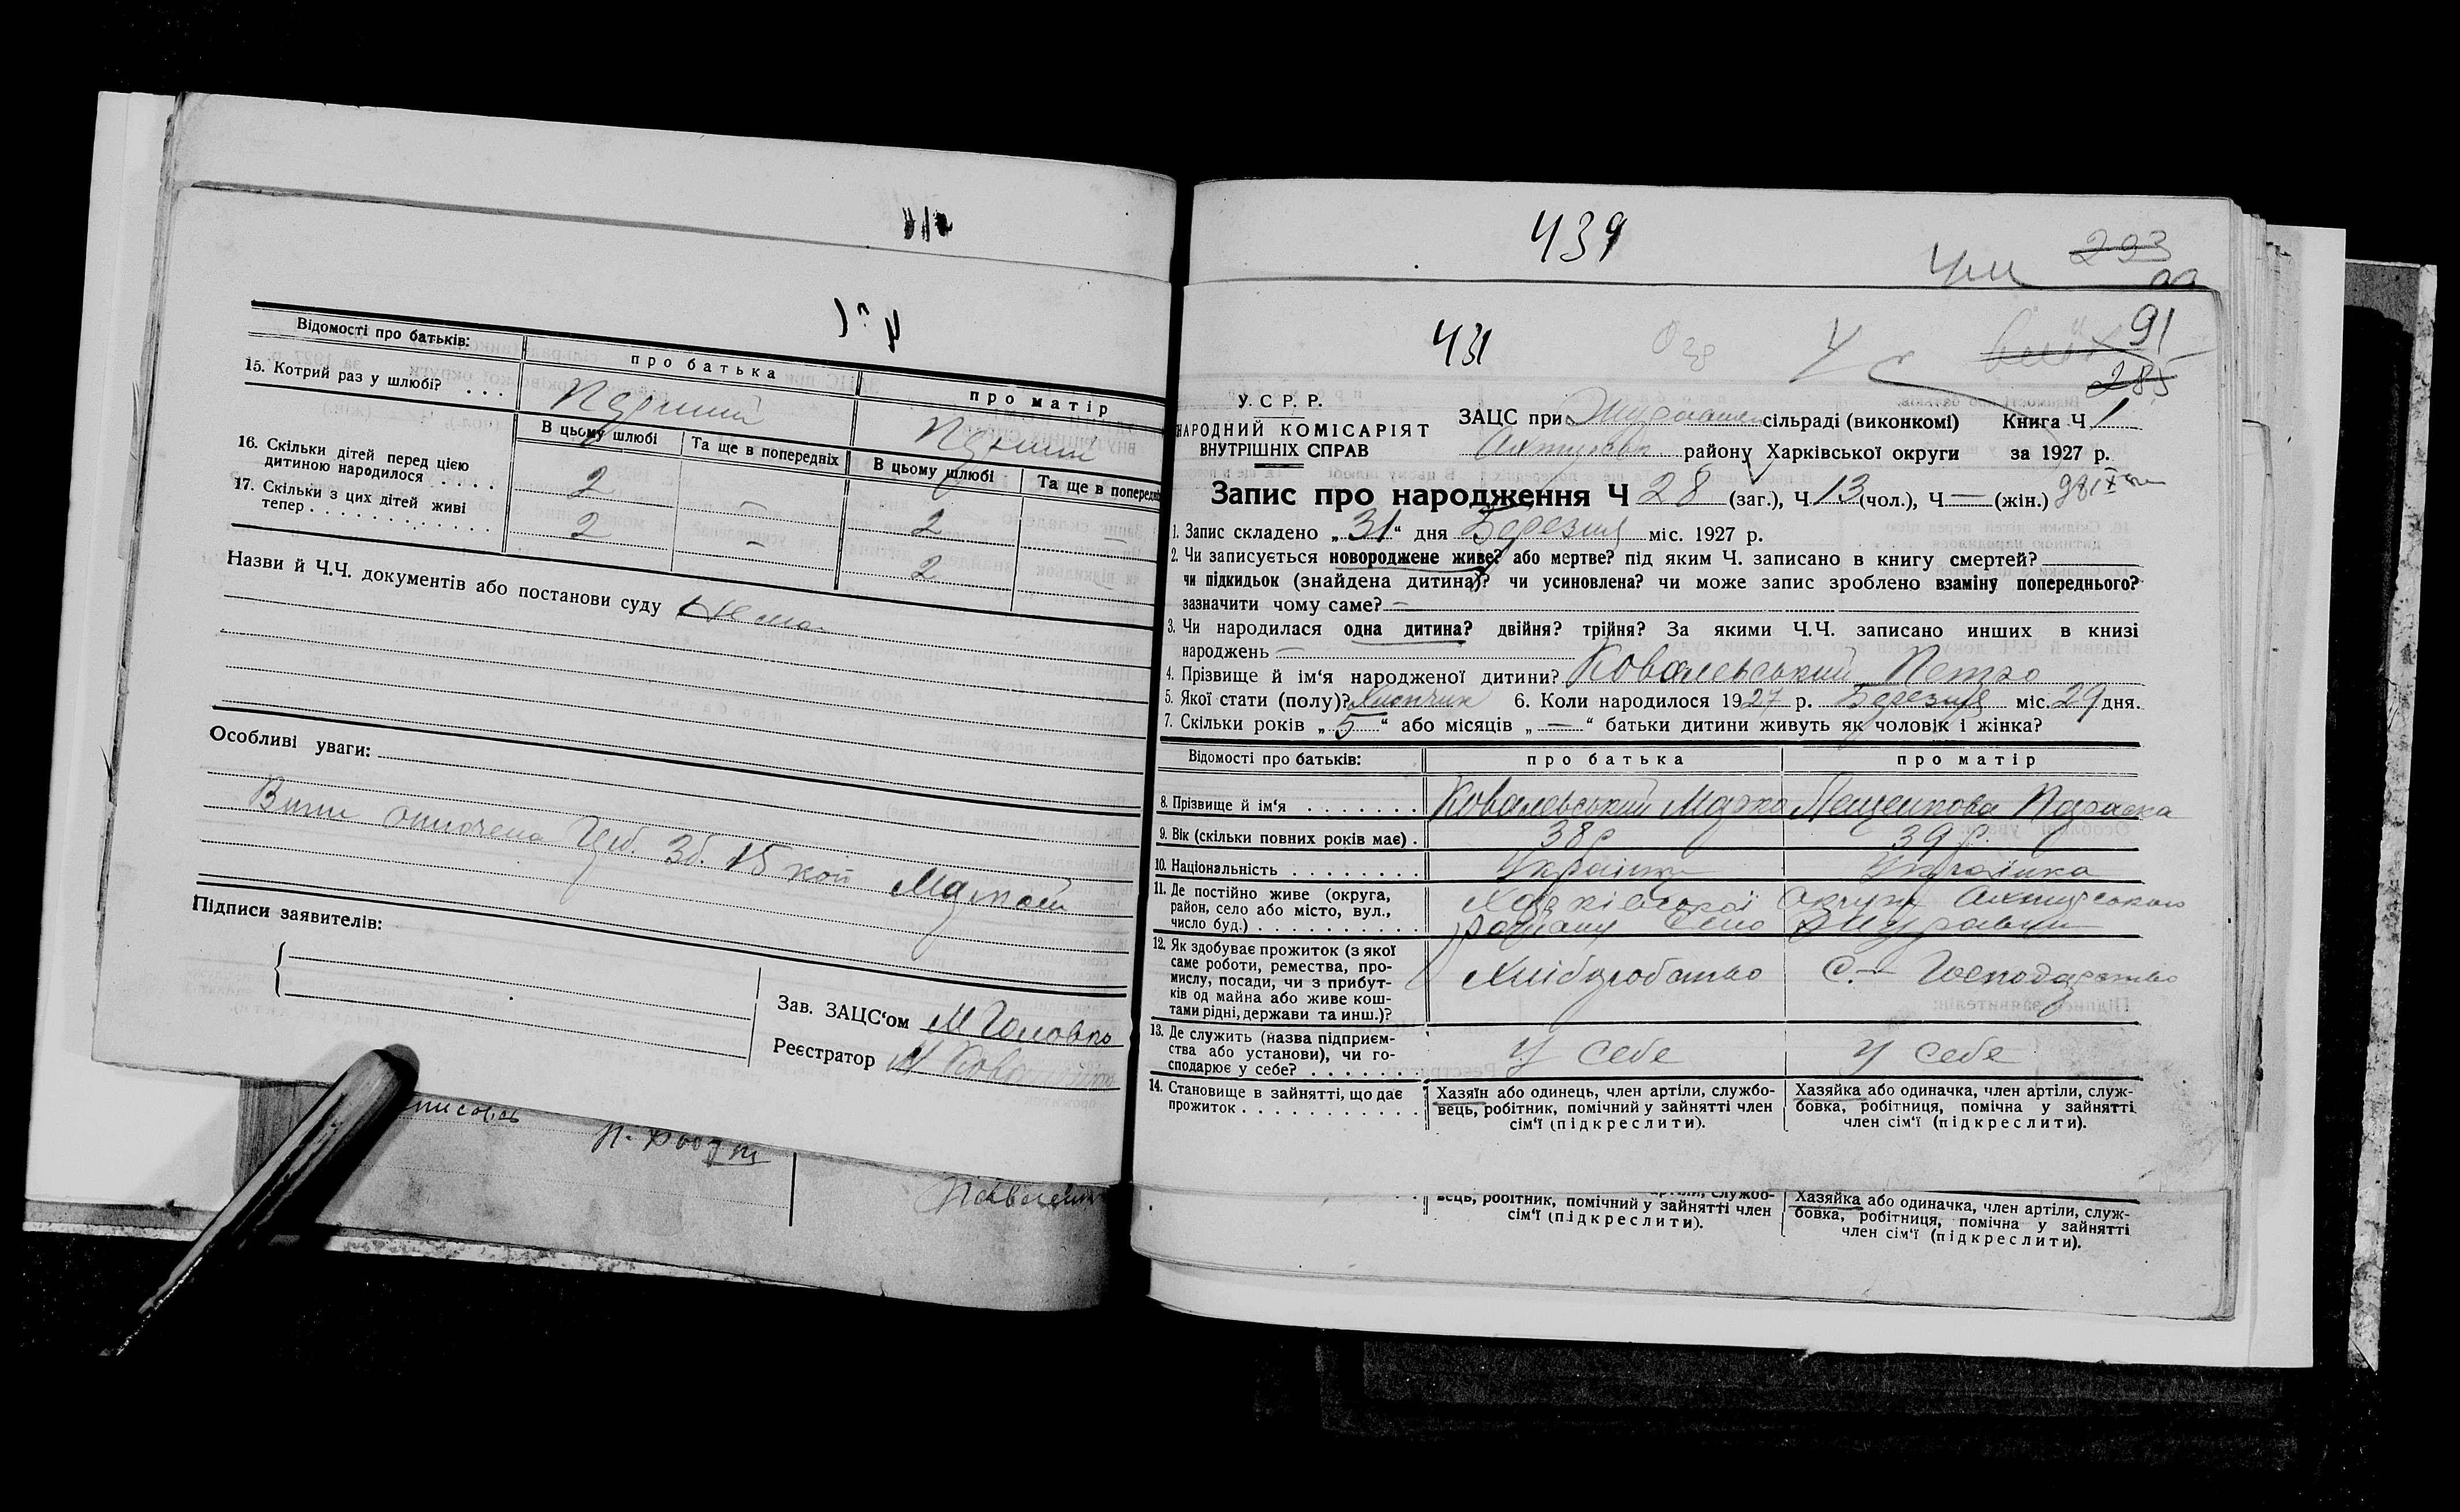 Відомості про батьків: про батька про матір
15. Котрий раз у шлюбі? . . . Перший Перший
В цьому шлюбі Та ще в попередніх В цьому шлюбі Та ще в попередніх
16. Скільки дітей перед цією
дитиною народилося . . . . . 2 — 2 —
17. Скільки з цих дітей живі
тепер . . . . . . . . . . . . 2 — 2 —
Назви й Ч.Ч. документів або постанови суду Нема
Особливі уваги:
оплочена Гер. Зб. 15 коп
Підписи заявителів:
Зав. ЗАЦС‘ом М Головко
Реєстратор
439
293
431
91
285
У. С. Р. Р.
НАРОДНИЙ КОМІСАРІЯТ
ВНУТРІШНІХ СПРАВ
ЗАЦС при Журавлен сільраді (виконкомі) Книга Ч 1
Охтирськ району Харківської округи за 1927 р.
Запис про народження Ч 28 (заг.), Ч 13 (чол.), Ч — (жін.)
1. Запис складено „31“ дня Березня міс. 1927 р.
2. Чи записується новороджене живе? або мертве? під яким Ч. записано в книгу смертей?
чи підкидьок (знайдена дитина)? чи усиновлена? чи може запис зроблено взаміну попереднього?
зазначити чому саме? —
3. Чи народилася одна дитина? двійня? трійня? За якими Ч.Ч. записано инших в книзі
народжень —
4. Прізвище й ім‘я народженої дитини? Ковалевський Петро
5. Якої стати (полу)? Хлопчик 6. Коли народилося 1927 р. Березня міс. 29 дня.
7. Скільки років „5“ або місяців „—“ батьки дитини живуть як чоловік і жінка?
Відомості про батьків: про батька про матір
8. Прізвище й ім‘я . . . . . . . Ковалевський Марко Лещенкова Параска
9. Вік (скільки повних років має) . 38 р 39 р.
10. Національність . . . . . . . . Українец Українка
11. Де постійно живе (округа,
район, село або місто, вул.,
число буд.) . . . . . . . . . .
Харківської Округи Охтирського
району Село Журавли
12. Як здобуває прожиток (з якої
саме роботи, ремества, про-
мислу, посади, чи з прибут-
ків од майна або живе кош-
тами рідні, держави та инш.)?
Хліборобство С.— Господарство
13. Де служить (назва підприєм-
ства або установи), чи го-
сподарює у себе? . . . . .
У себе У себе
14. Становище в зайнятті, що дає
прожиток . . . . . . . . . . . .
Хазяїн або одинець, член артіли, службо-
вець, робітник, помічний у зайнятті член
сім‘ї (підкреслити).
Хазяйка або одиначка, член артіли, служ-
бовка, робітниця, помічна у зайнятті
член сім‘ї (підкреслити).
вець, робітник, помічний у зайнятті член
сім‘ї (підкреслити).
Хазяйка або одиначка, член артіли, служ-
бовка, робітниця, помічна у зайнятті
член сім‘ї (підкреслити).